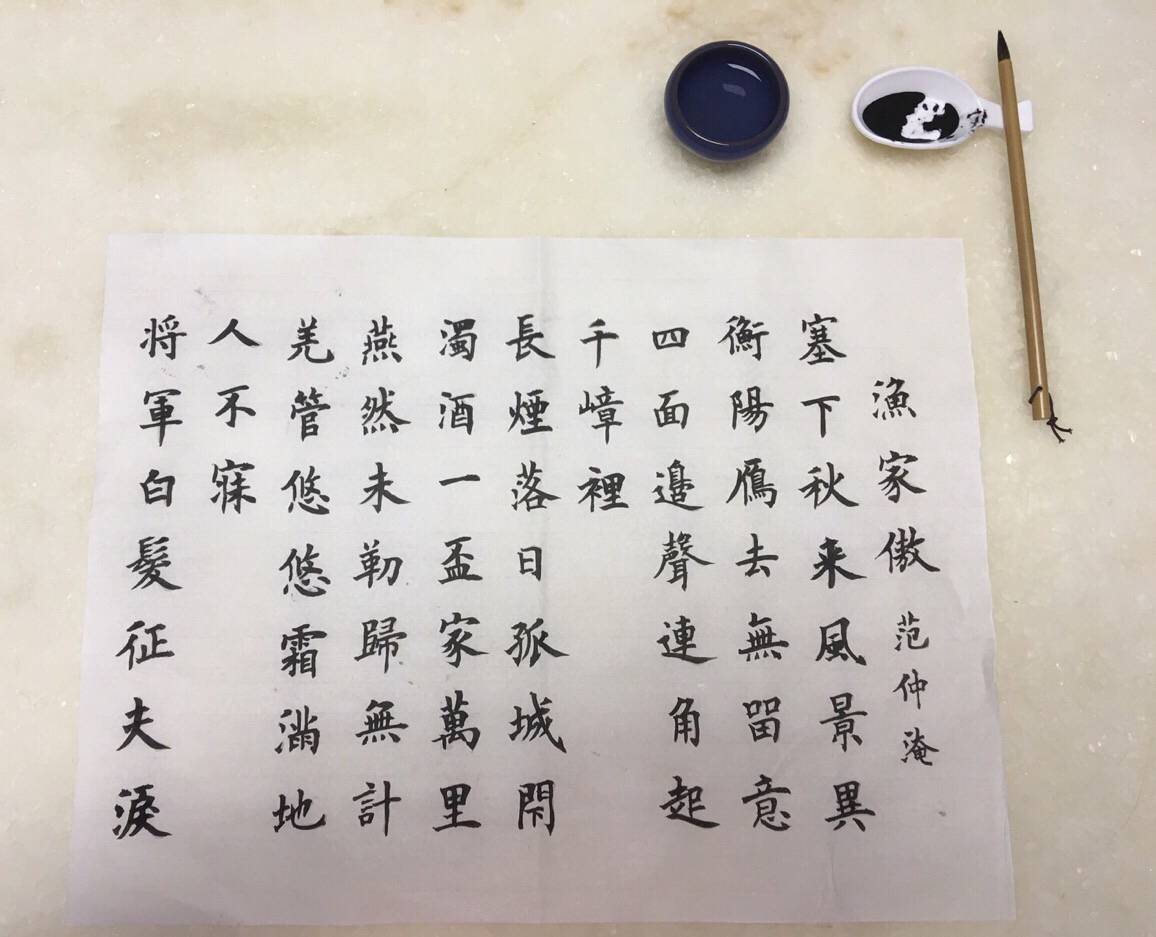 漁家傲 范仲淹
塞下秋来風景異
衡陽雁去無留意
四面邊聲連角起
千嶂裡
長煙落日孤城閉
濁酒一盃家萬里
燕然未勒歸無計
羌管悠悠霜滿地
人不寐
将軍白髮征夫淚